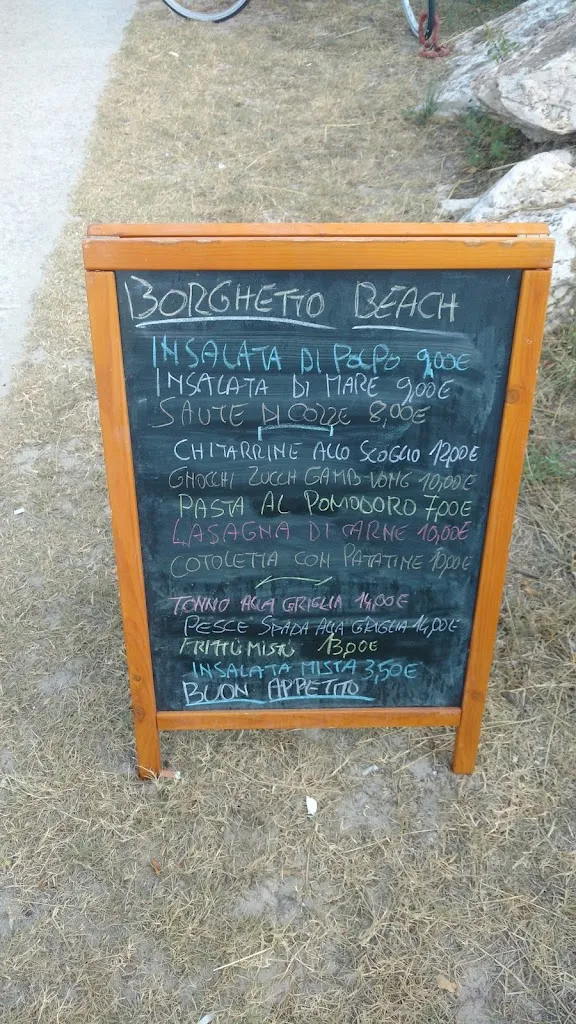 BORGHETTO BEACH
INSALATA DI POLPO 9,00€
INSALATA DI MARE 9,00€
SAUTE DI COZZE 8,00€
CHITARRINE ALLO SCOGLIO 12,00€
GNOCCHI ZUCCH GAMB VONG 10,00€
PASTA AL POMODORO 7,00€
LASAGNA DI CARNE 10,00€
COTOLETTA CON PATATINE 10,00€
TONNO ALLA GRIGLIA 14,00€
PESCE SPADA ALLA GRIGLIA 14,00€
FRITTU MISTU 13,00€
INSALATA MISTA 3,50€
BUON APPETITO